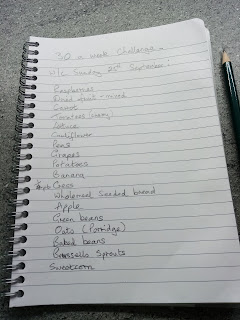 30 a week challenge.
w/c Sunday 25th September:
Raspberries
Dried fruit - mixed
Carrot
Tomatoes (cherry)
Lettuce
Cauliflower
Peas
Grapes
Potatoes
Banana
Cress
Wholemeal seeded bread
Apple
Green beans
Oats (Porridge)
Baked beans
Brussells Sprouts
Sweetcorn